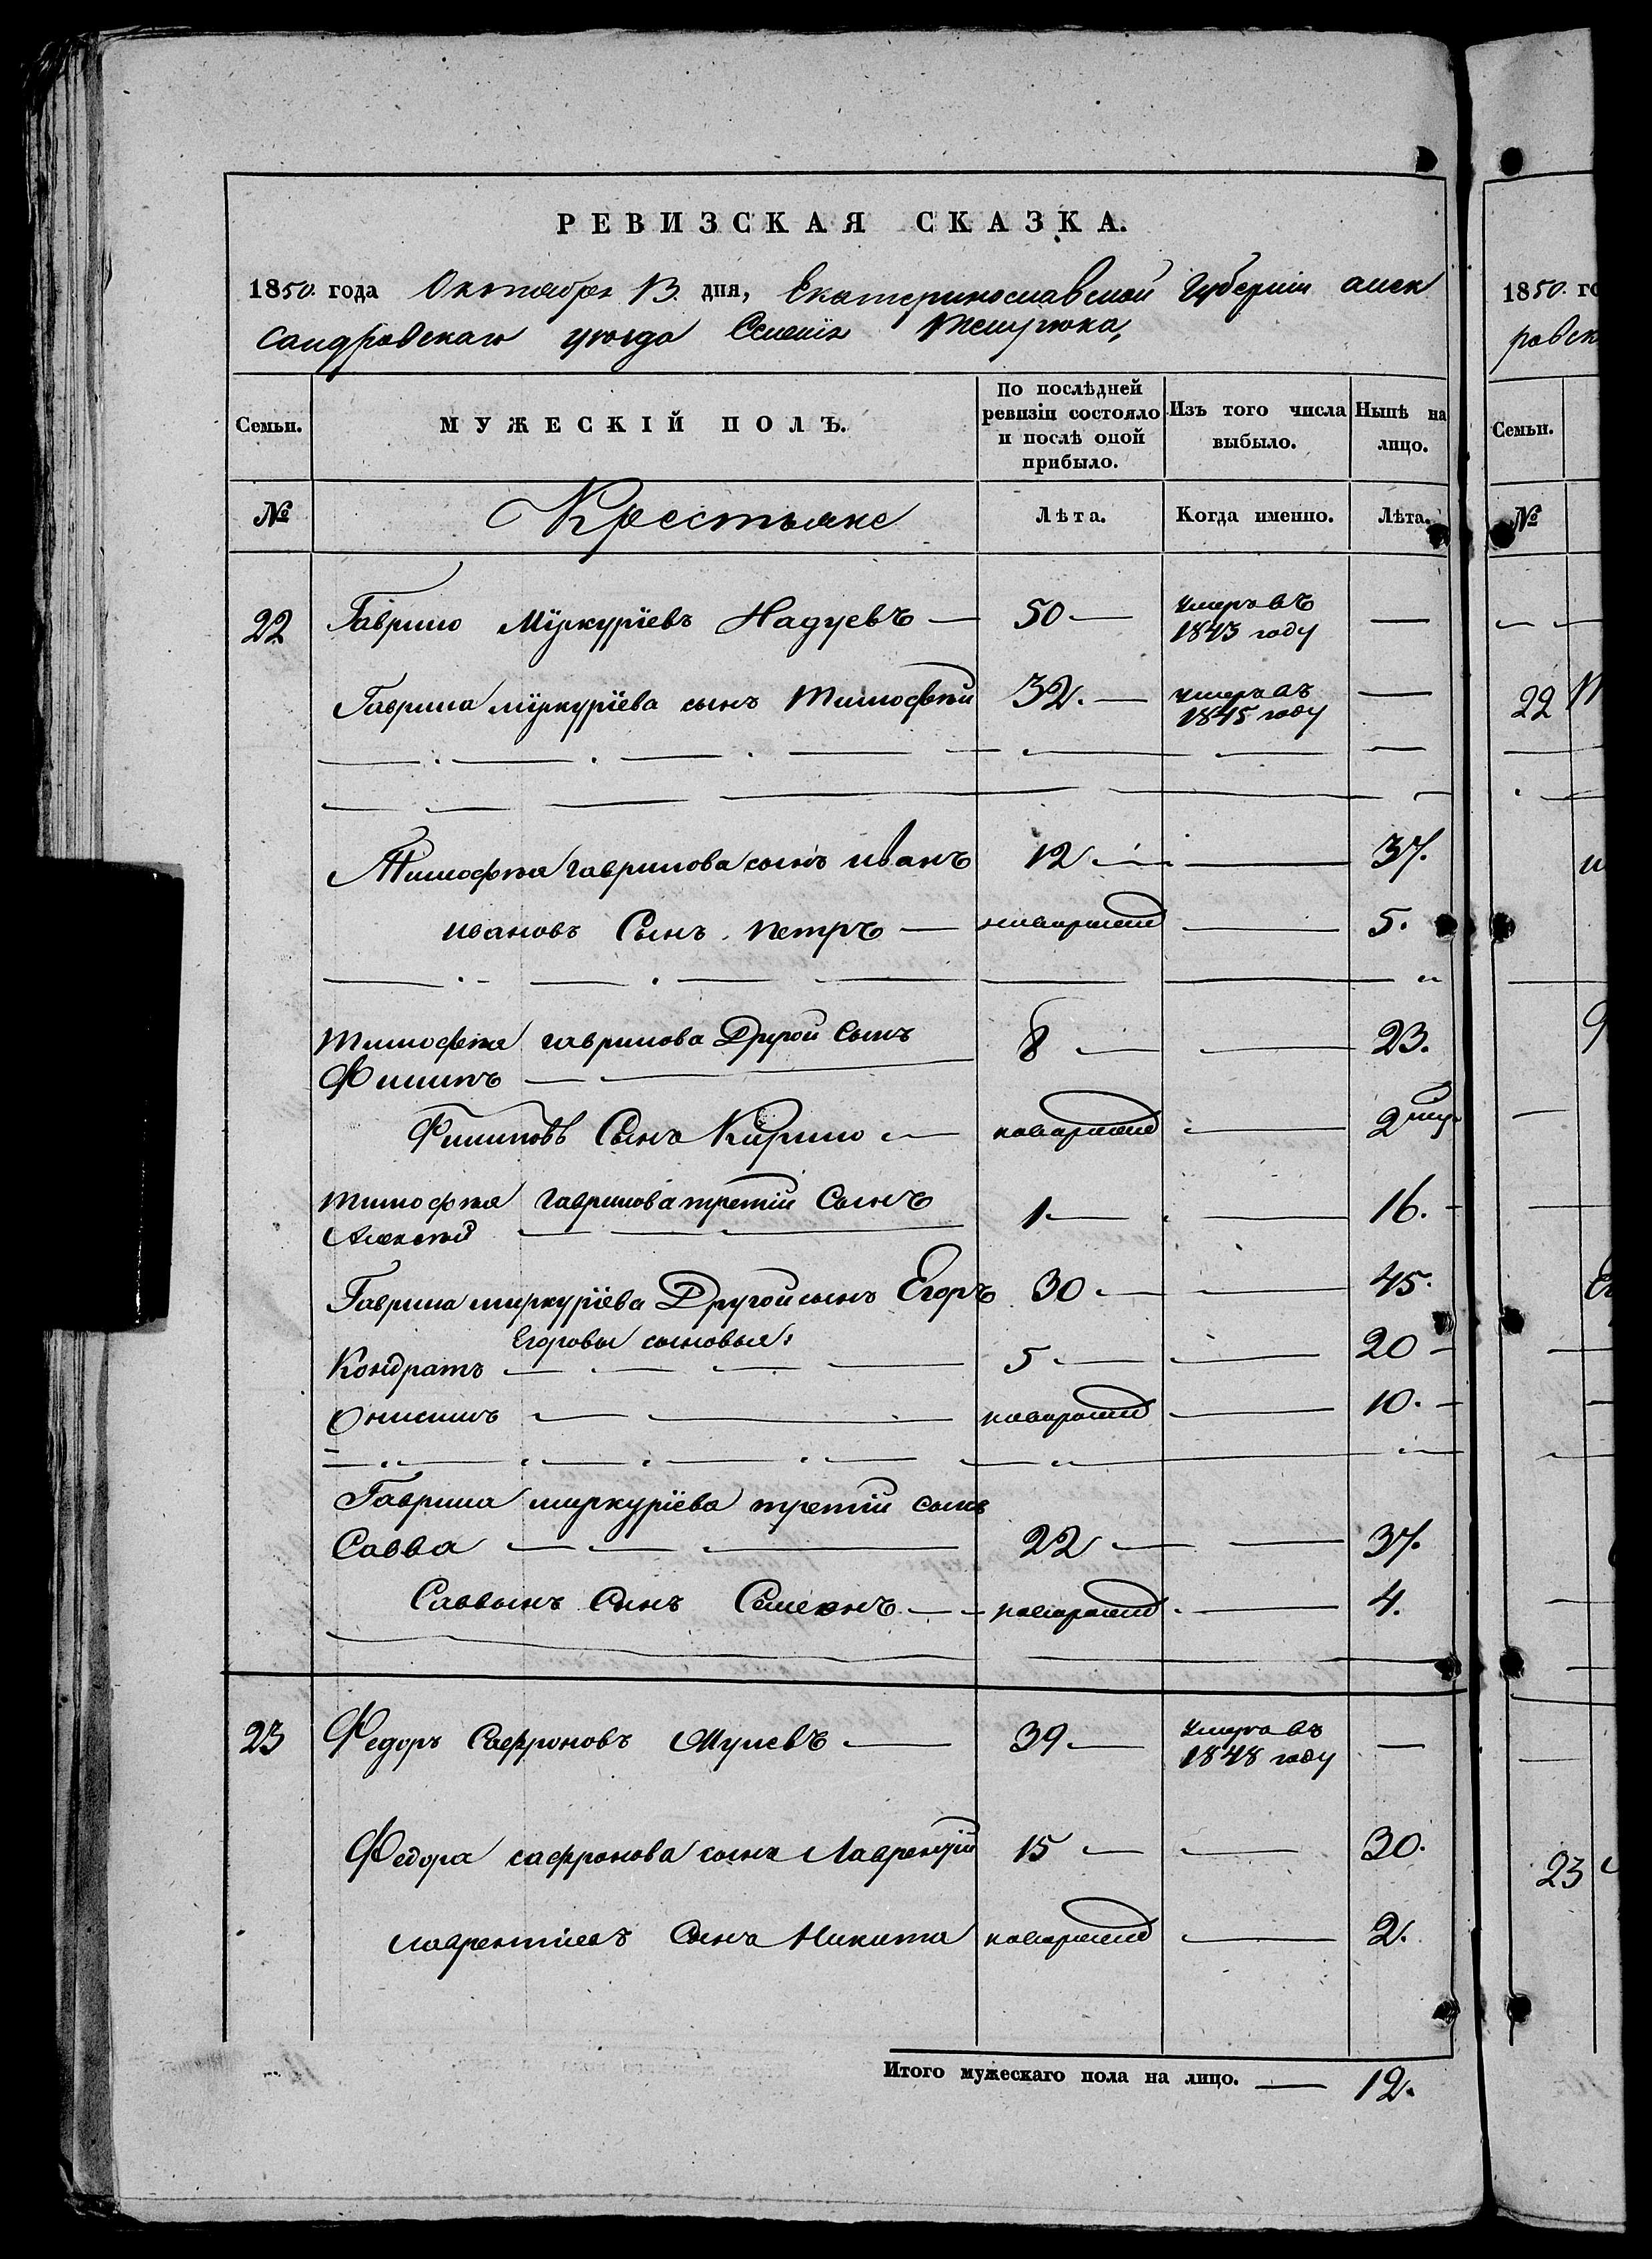 РЕВИЗСКАЯ СКАЗКА.
1850. года Октября 13. дня, Екатеринославской Губернии алек
сандровскаго уѣзда Селенія Темрюка,
Семьи. МУЖЕСКІЙ ПОЛЪ. По послѣдней ревизіи состояло и послѣ оной прибыло. Изъ того числа выбыло. Нынѣ на лицо.
№ Крестьяне Лѣта. Когда именно. Лѣта.
22 Гаврило Мїркурїевъ Надуевъ — 50 — умеръ въ 1843 году —
Гаврила мїркурїева сынъ Тимофѣй 32. — умеръ въ 1845 году —
Тимофѣя гаврилова сынъ иванъ 12 — — 37.
ивановъ Сынъ петръ — новорожд — 5.
Тимофѣя гаврилова Другой Сынъ
Филипъ — — 8 — — 23.
Филиповъ Сынъ Кирило — новорожд — 2
Тимофѣя гаврилова третій Сынъ
Алексѣй — 1 — — 16.
Гаврила миркурїева Другой сынъ Егоръ 30 — — 45.
Егоровы сыновья:
Кондратъ — 5 — — 20 —
Онисимъ — новорожд — 10. —
Гаврила миркурїева третій сынъ
Савва — 22 — — 37.
Саввынъ Сынъ Семенъ — новорожд. — 4.
23 Федоръ Сафроновъ — 39 — умеръ въ 1848 году —
Федора сафронова сынъ Лаврентій 15 — — 30.
лаврентіевъ Сынъ Никита новорожд — 2.
Итого мужескаго пола на лицо. — 12.
1850. го
ровск
Семьи.
№
22
23